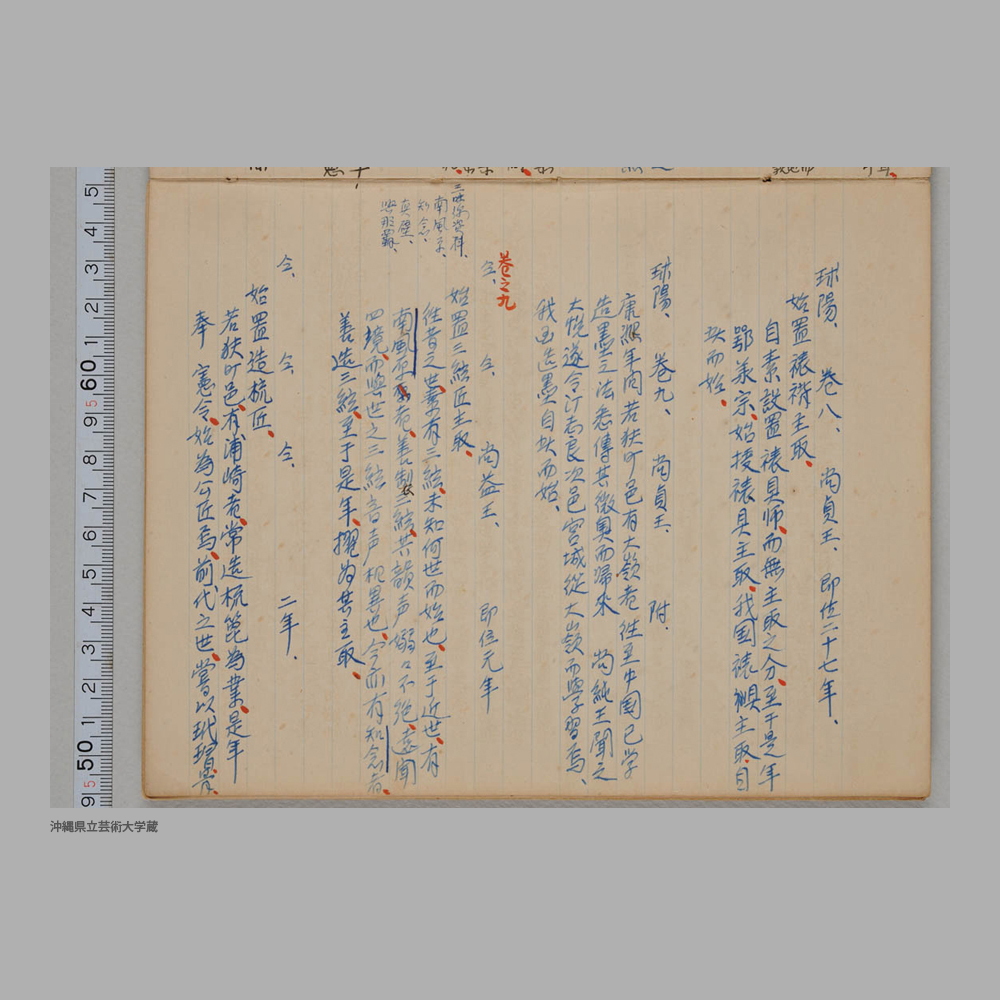 球陽、 巻八、 尚貞王、 即位二十七年、
始置裱褙主取、
自素設置裱具师而無主取之分、至于是年
鄂美宗、始授裱具主取、我国裱褙主取、自
玆而始、
球陽、 巻九、 尚貞王、 附、
康熙年间若狭町邑有大嶺者往至中國已学
造墨之法悉傳其微奥而帰来 尚純王聞之
大悦遂令汀志良次邑宮城従大嶺而學習焉、
我国造墨自玆而始、
巻之九
仝、 仝、 尚益王、 即位元年
三味線資料、
南風原、
知念、
真壁、
始置三絃匠主取、
往昔之世、素有三絃、未知何世而始也、至于近世、有
南風原者、善制三絃、其韻声嫋々不絶、遠聞
四境、而與世之三絃音声相異也、今亦有知念者、
善造三絃、至于是年、擢為其主取、
仝、 仝、 仝、 二年、
始置造梳匠、
若狭町邑、有浦崎者、常造梳篦為業、是年
奉 憲令、始為公匠焉、前代之世、嘗以玳瑁
沖縄県立芸術大学蔵